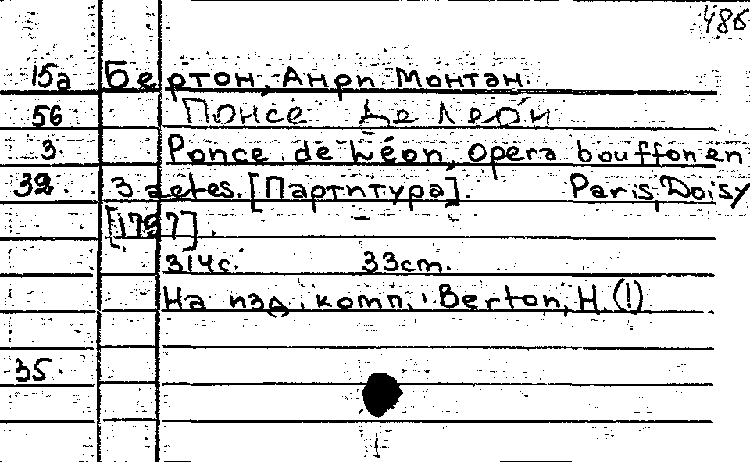 486
15а Бертон, Анри Монтан.
56 Понсе де Леон
3. Ponce de Léon, Opera bouffon en
32. 3 actes. [Партитура]. Paris, Doisy
[1797].
314с. 33cm.
На изд. комп.: Berton, H. (!)
35.